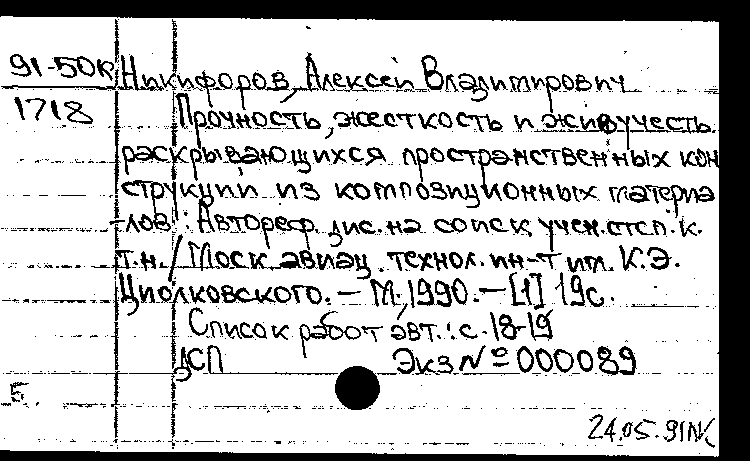 91-50к Никифоров, Алексей Владимирович
1718 Прочность, жесткость и живучесть
раскрывающихся пространственных кон
струкций из композиционных материа
-лов : Автореф. дис. на соиск. учен. степ. к.
т.н. / Моск. авиац. технол. ин-т им. К.Э.
Циолковского. — М., 1990. — [1] 19с.
Список работ авт.: с. 18-19
ДСП Экз № 000089
5.
24.05.91